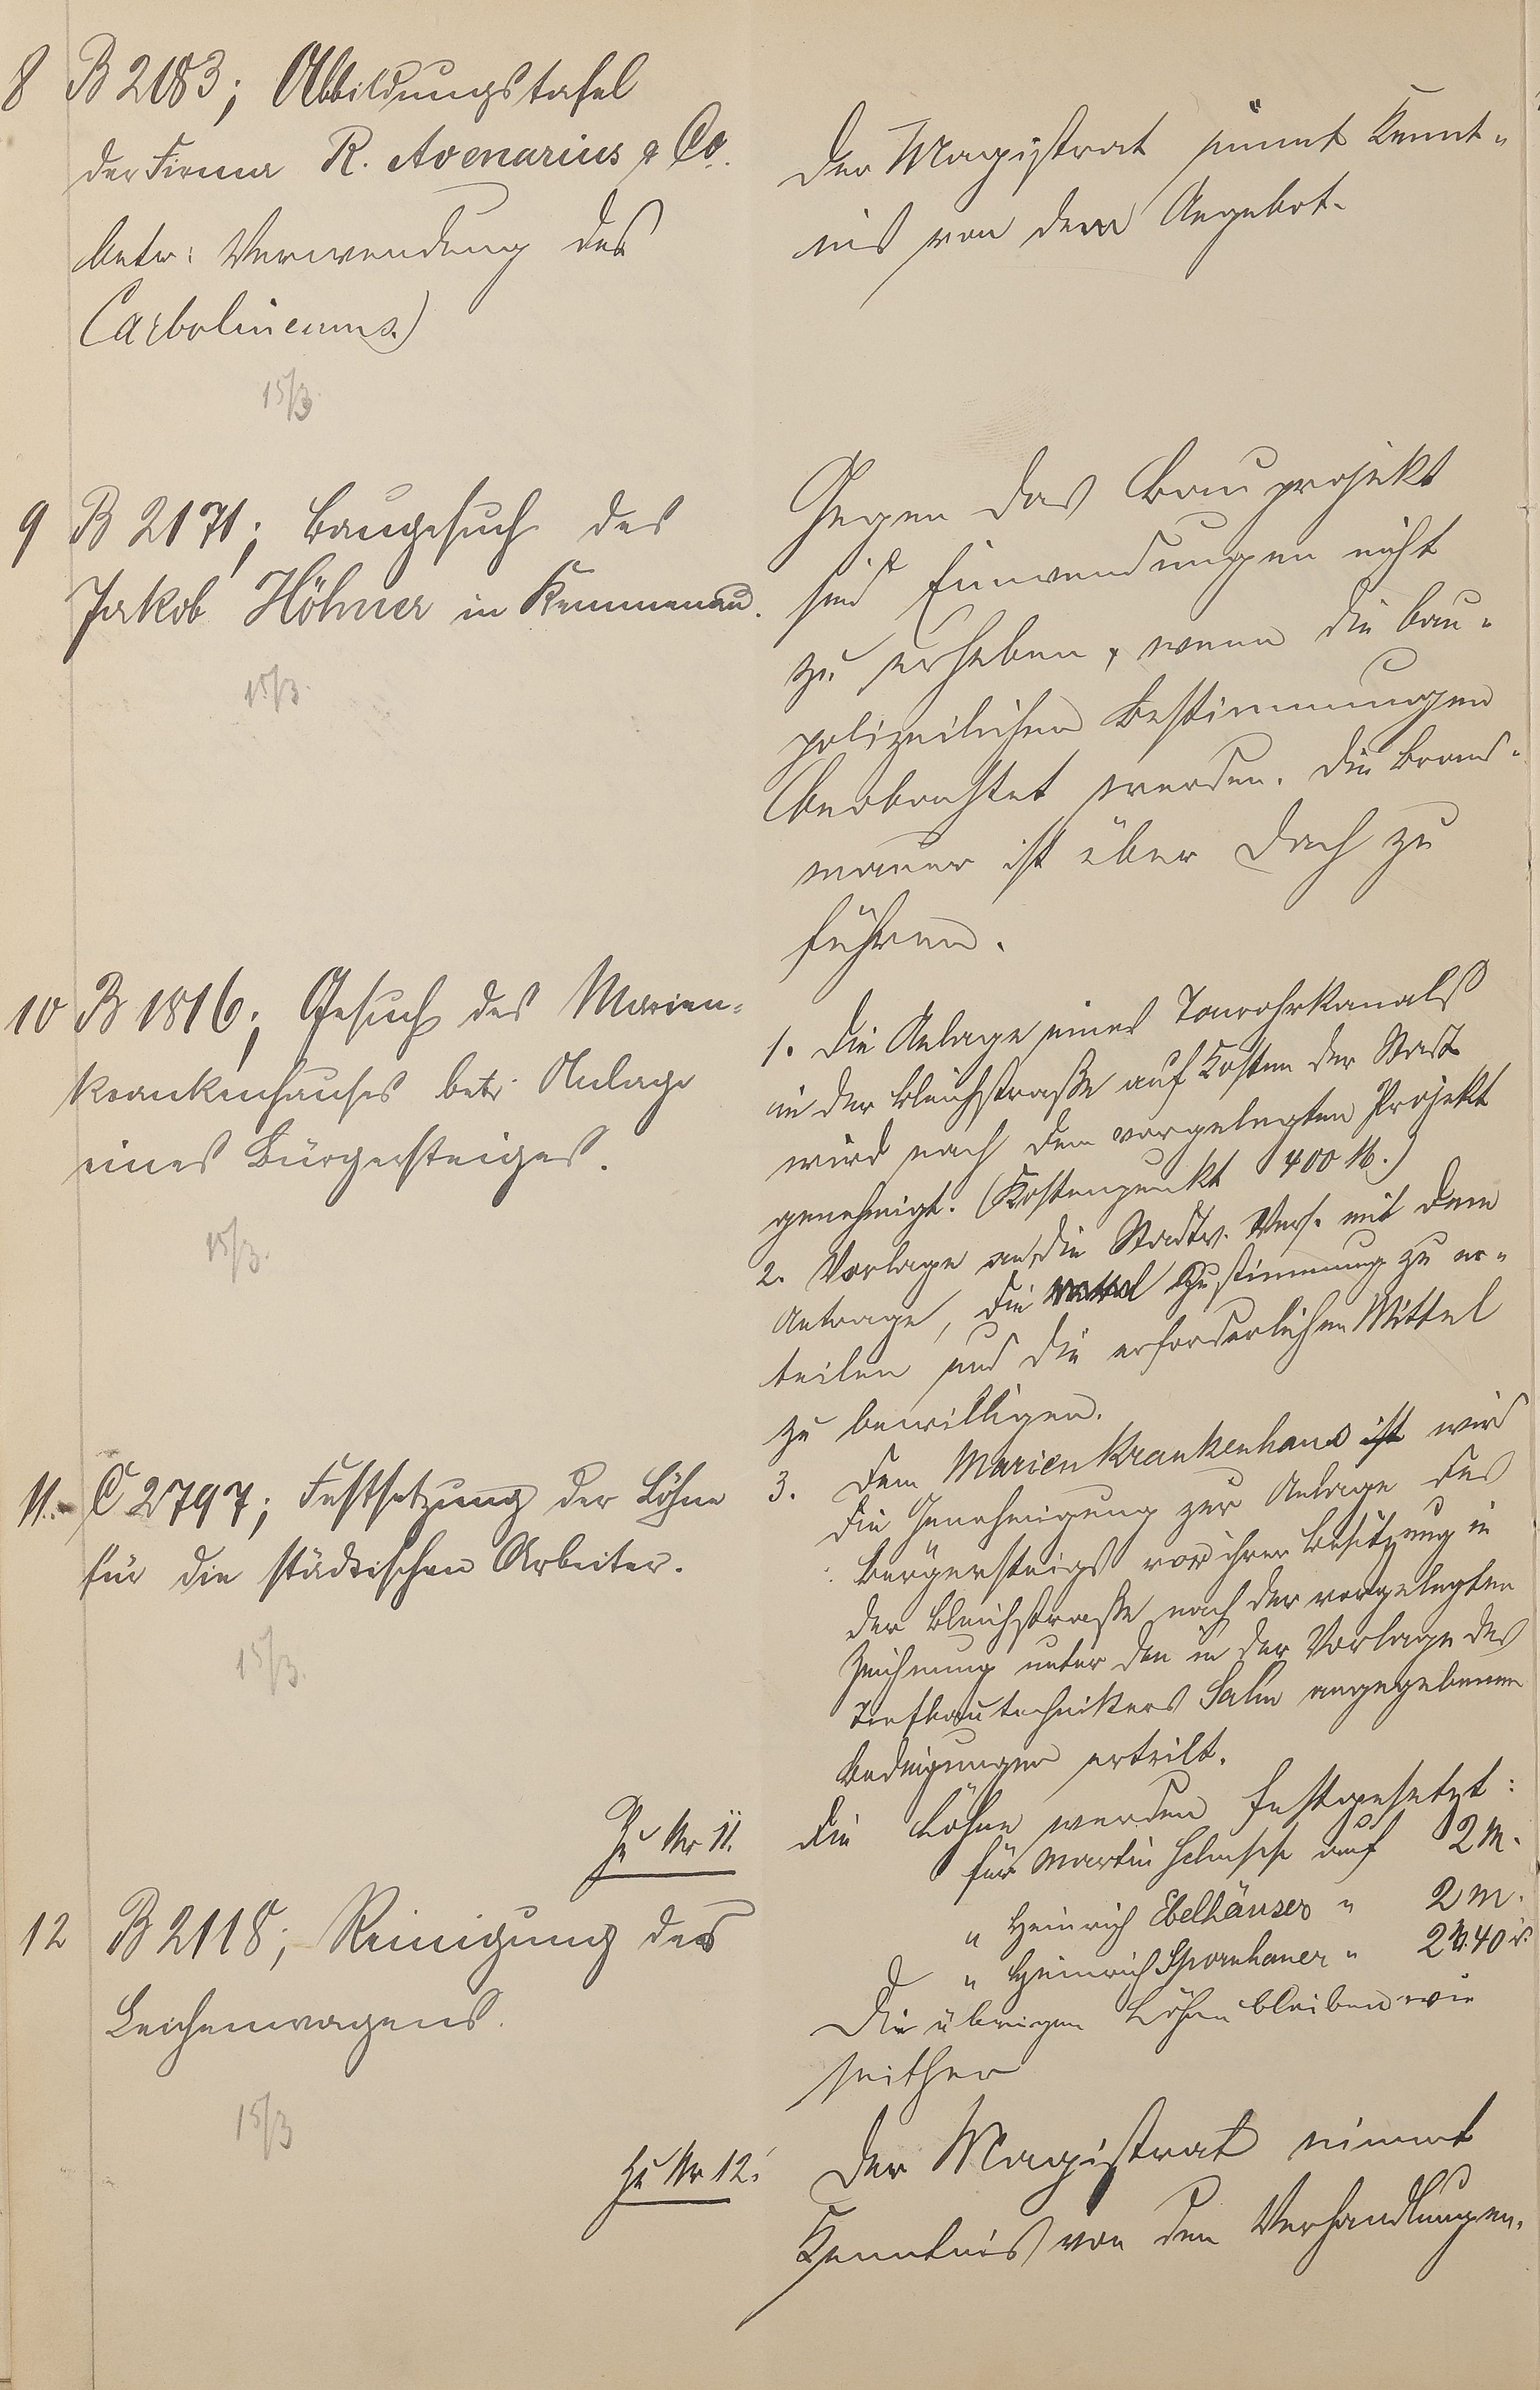 8 B 2183; Abbildungstafel
der Firma R. Avenarius & Co.
betr: Verwendung des
Carbolineums.)
15/3.
Der Magistrat nimmt Kennt-
nis von dem Angebot.
9 B 2171; Baugesuch des
Jakob Höhner in Kemmenau.
15/3.
Gegen das Bauprojekt
sind Einwendungen nicht
zu erheben, wenn die bau-
polizeilichen Bestimmungen
beobachtet werden. Die Brand-
mauer ist über Dach zu
führen.
10 B 1816; Gesuch des Marien-
krankenhauses betr. Anlage
eines Bürgersteiges.
15/3.
1. Die Anlage eines Tonrohrkanals
in der Bleichstraße auf Kosten der Stadt
wird nach dem vorgelegten Projekt
genehmigt. (Kostenpunkt 400 M.)
2. Vorlage an die Stadtv. Vers. mit dem
Antrage, die Zustimmung zu er-
teilen und die erforderlichen Mittel
zu bewilligen.
3. Dem Marienkrankenhaus ist wird
die Genehmigung zur Anlage des
Bürgersteigs vor ihrer Besitzung in
der Bleichstraße nach der vorgelegten
Zeichnung unter den in der Vorlage des
Tiefbautechnikers Salm angegebenen
Bedingungen erteilt.
11. C 2797; Festsetzung der Löhne
für die städtischen Arbeiter.
15/3.
Zu Nr 11. Die Löhne werden festgesetzt:
für Martin auf 2 M.
" Heinrich Ebelhäuser " 2 M.
" Heinrich Spornhauer " 2 M. 40
Die übrigen Löhne bleiben wie
seither
12 B 2118; Reinigung des
Leichenwagens.
15/3
Zu Nr 12. Der Magistrat nimmt
Kenntnis von den Verhandlungen.